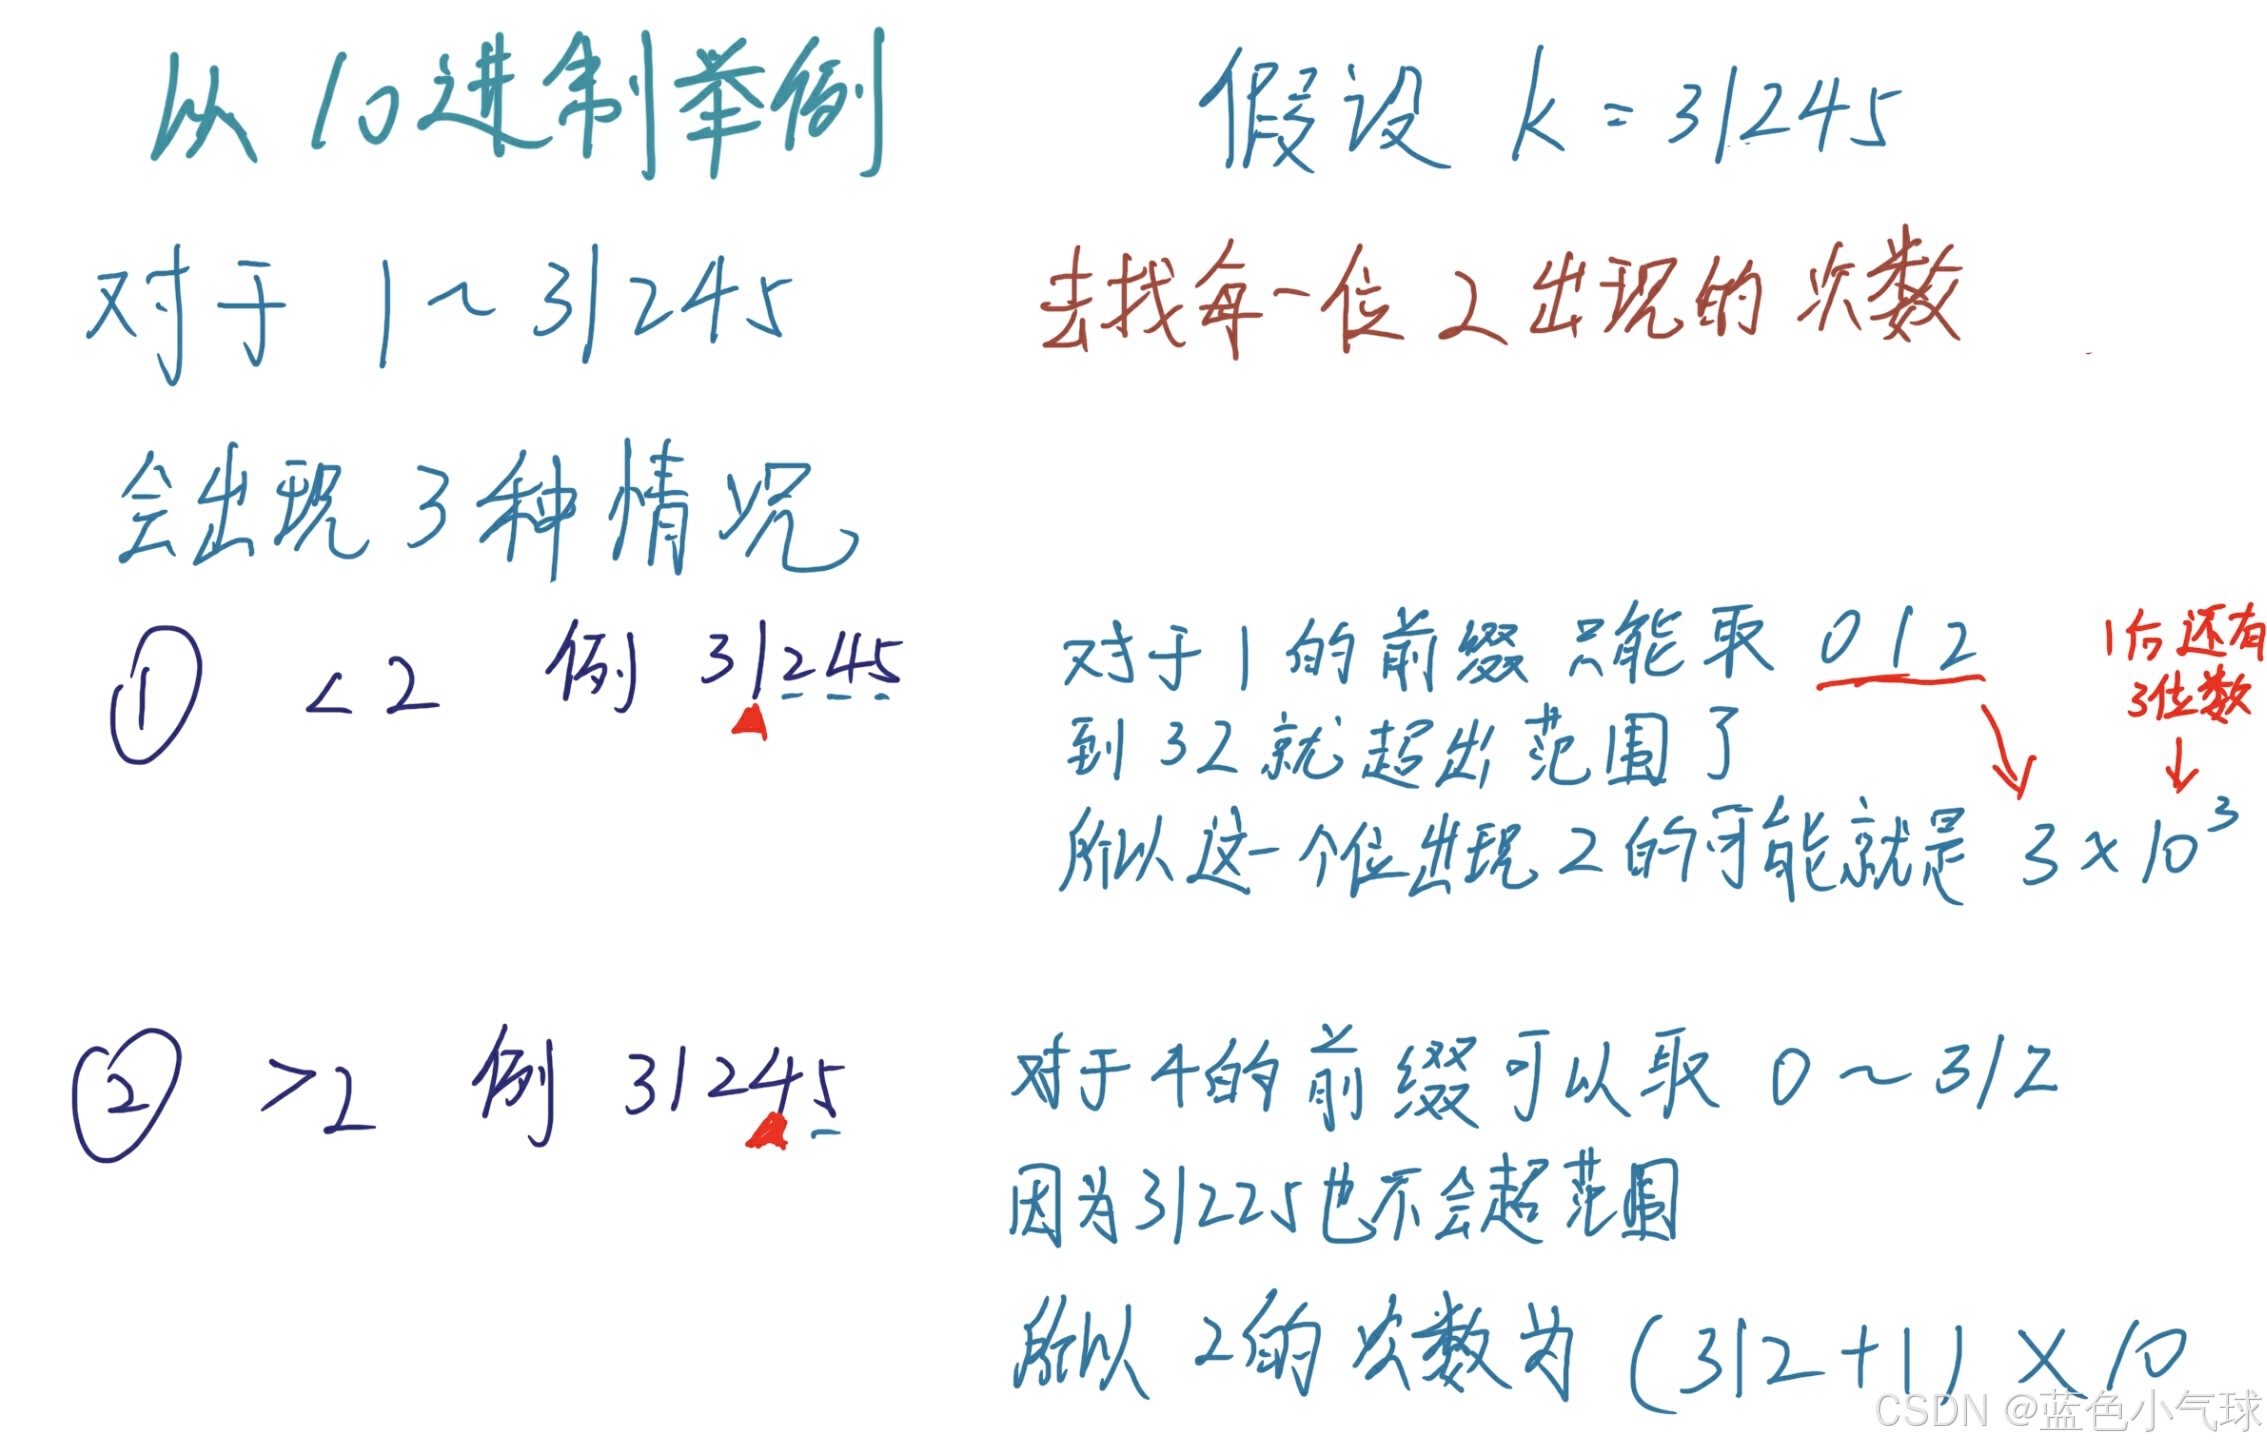 从10进制举例
假设 k = 31245
对于 1 ~ 31245
去找每一位 2 出现的次数
会出现 3 种情况
① < 2 例 31245
对于 1 的前缀只能取 0 1 2
1后还有
3位数
到 32 就超出范围了
所以这一个位出现 2 的可能就是 3 × 10³
② > 2 例 31245
对于 4 的前缀可以取 0 ~ 312
因为 31225 也不会超范围
所以 2 的次数为 (312 + 1) × 10
CSDN @蓝色小气球